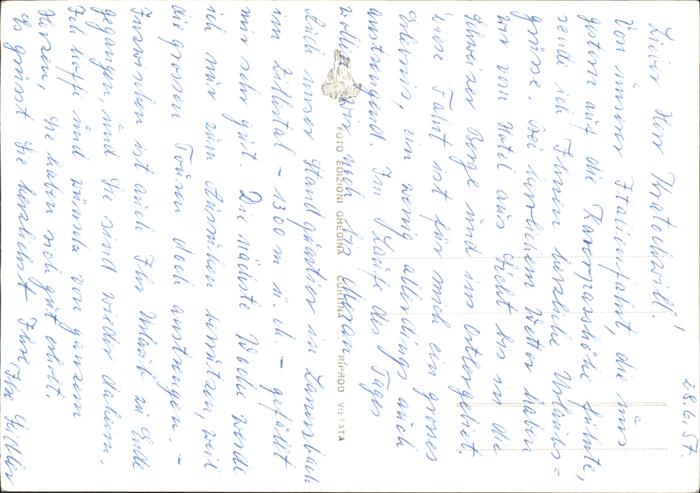 28.6.57.
Lieber Herr Kratochwill!
Von unserer Italienfahrt, die uns
gestern auf die Karerpasshöhe führte,
sende ich Ihnen herzliche Urlaubs=
grüsse. Bei herrlichem Wetter haben
wir vom Hotel aus Sicht bis in die
Schweizer Berge und ins Ortlergebiet.
Diese Fahrt ist für mich ein grosses
Erlebnis, ein wenig allerdings auch
anstrengend. Im Laufe des Tages
wollen wir noch bis Meran.
Auch unser Standquartier in Lanersbach
im Zillertal - 1300 m ü. M. - gefällt
mir sehr gut. Die nächste Woche werde
ich nur zum Ausruhen benützen, weil
die grossen Touren doch anstrengen. -
Inzwischen ist auch Ihr Urlaub zu Ende
gegangen, und Sie sind wieder daheim.
Ich hoffe und wünsche von ganzem
Herzen, Sie haben sich gut erholt.
Es grüsst Sie herzlichst Ihre
FOTO EDIZIONI GHEDINA CORTINA RIPROD. VIETATA